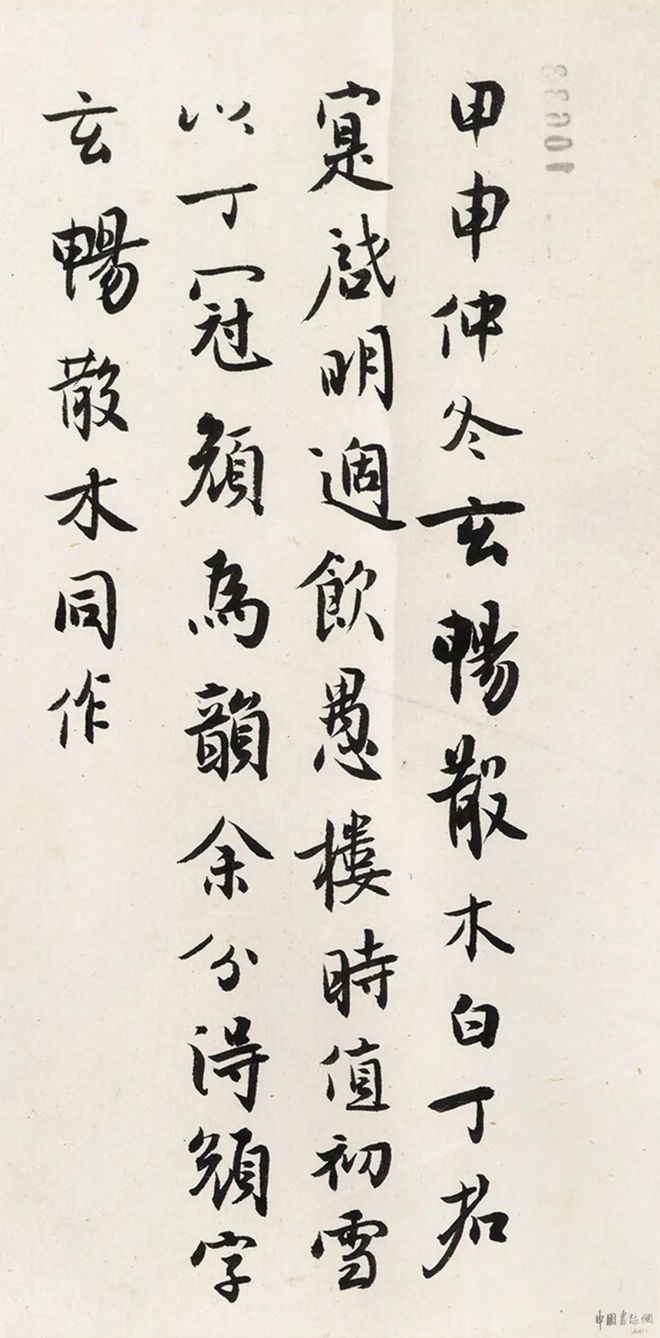 甲申仲冬玄暢散木白丁若
寔啟明過飲愚樓時值初雪
以丁冠頹為韻余分得頹字
玄暢散木同作
中國書法網